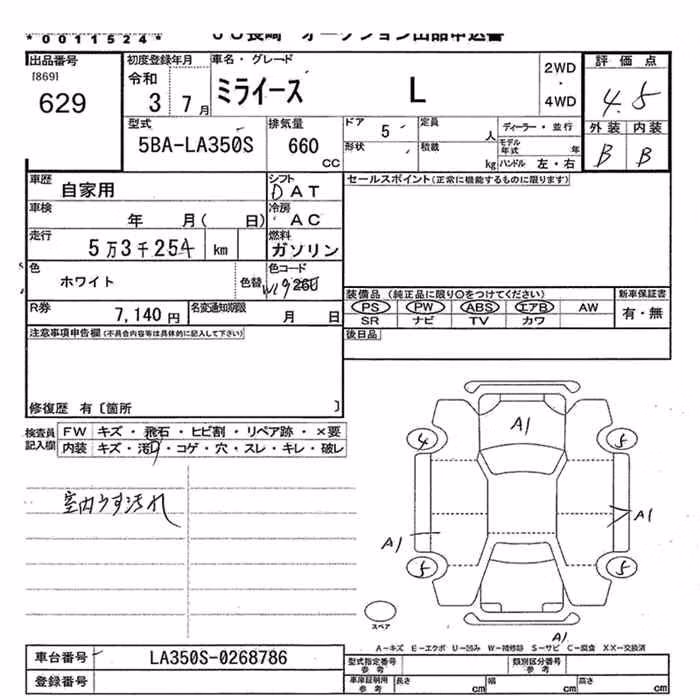 *0011524* JU長崎 オークション出品申込書
出品番号 初度登録年月 車名・グレード 2WD 評価点
[869] 令和 ・
629 3年 7月 ミライース L 4WD 4.5
型式 排気量 ドア 5 定員 人 ディーラー・並行 外装 内装
5BA-LA350S 660 CC 形状 積載 kg モデル年式 年 B B
ハンドル 左・右
車歴 自家用 シフト DAT セールスポイント(正常に機能するものに限ります)
車検 年 月( 日) 冷房 AC
走行 5万3千254 km 燃料 ガソリン
色 ホワイト 色替 色コード
装備品 (純正品に限り○をつけてください) 新車保証書
R券 7,140円 名変通知期限 月 日 PS PW ABS エアB AW 有・無
SR ナビ TV カワ
注意事項申告欄(不具合内容等は具体的に記入して下さい) 後日品
修復歴 有〔箇所 〕
検査員記入欄 FW キズ・飛石・ヒビ割・リペア跡・×要
内装 キズ・汚れ・コゲ・穴・スレ・キレ・破レ
室内うす汚れ
A1
4 5
A1 A1
5 5
スペア
A1
A-キズ E-エクボ U-凹み W-補修跡 S-サビ C-腐食 XX-交換済
車台番号 LA350S-0268786 型式指定番号 参考 類別区分番号 参考
登録番号 車庫証明用 参考 長さ cm 幅 cm 高さ cm